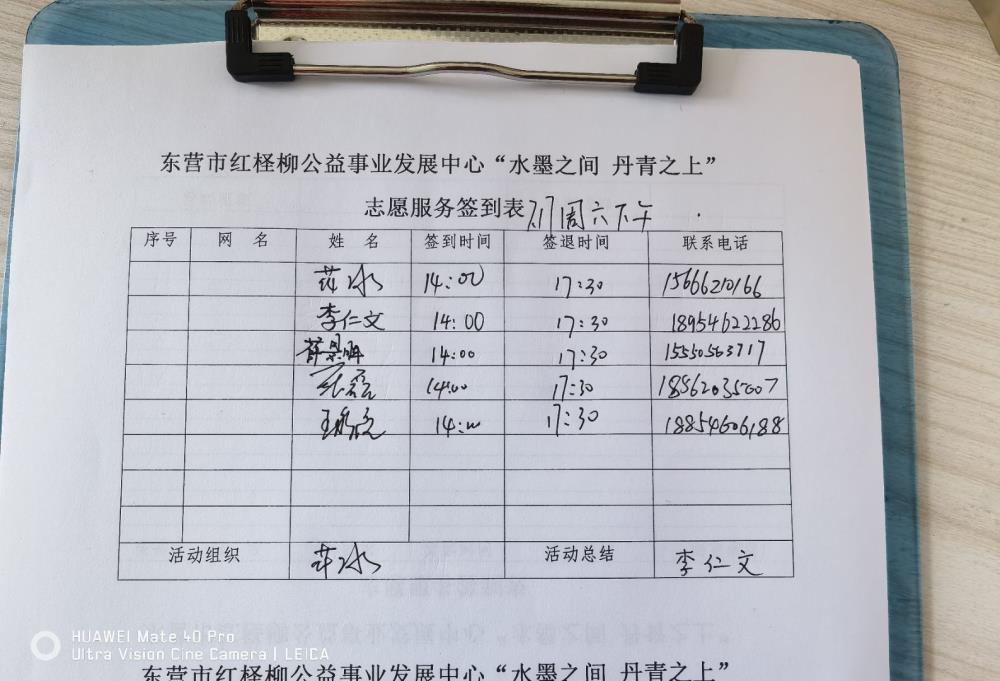 东营市红柽柳公益事业发展中心“水墨之间 丹青之上”
志愿服务签到表 周六下午
序号 网 名 姓 名 签到时间 签退时间 联系电话
冰 14:00 17:30 15666210166
李仁文 14:00 17:30 18954622286
薛景 14:00 17:30 15550563717
14:00 17:30
王 14:00 17:30 18854606188
活动组织 冰 活动总结 李仁文
HUAWEI Mate 40 Pro
Ultra Vision Cine Camera | LEICA
东营市红柽柳公益事业发展中心“水墨之间 丹青之上”